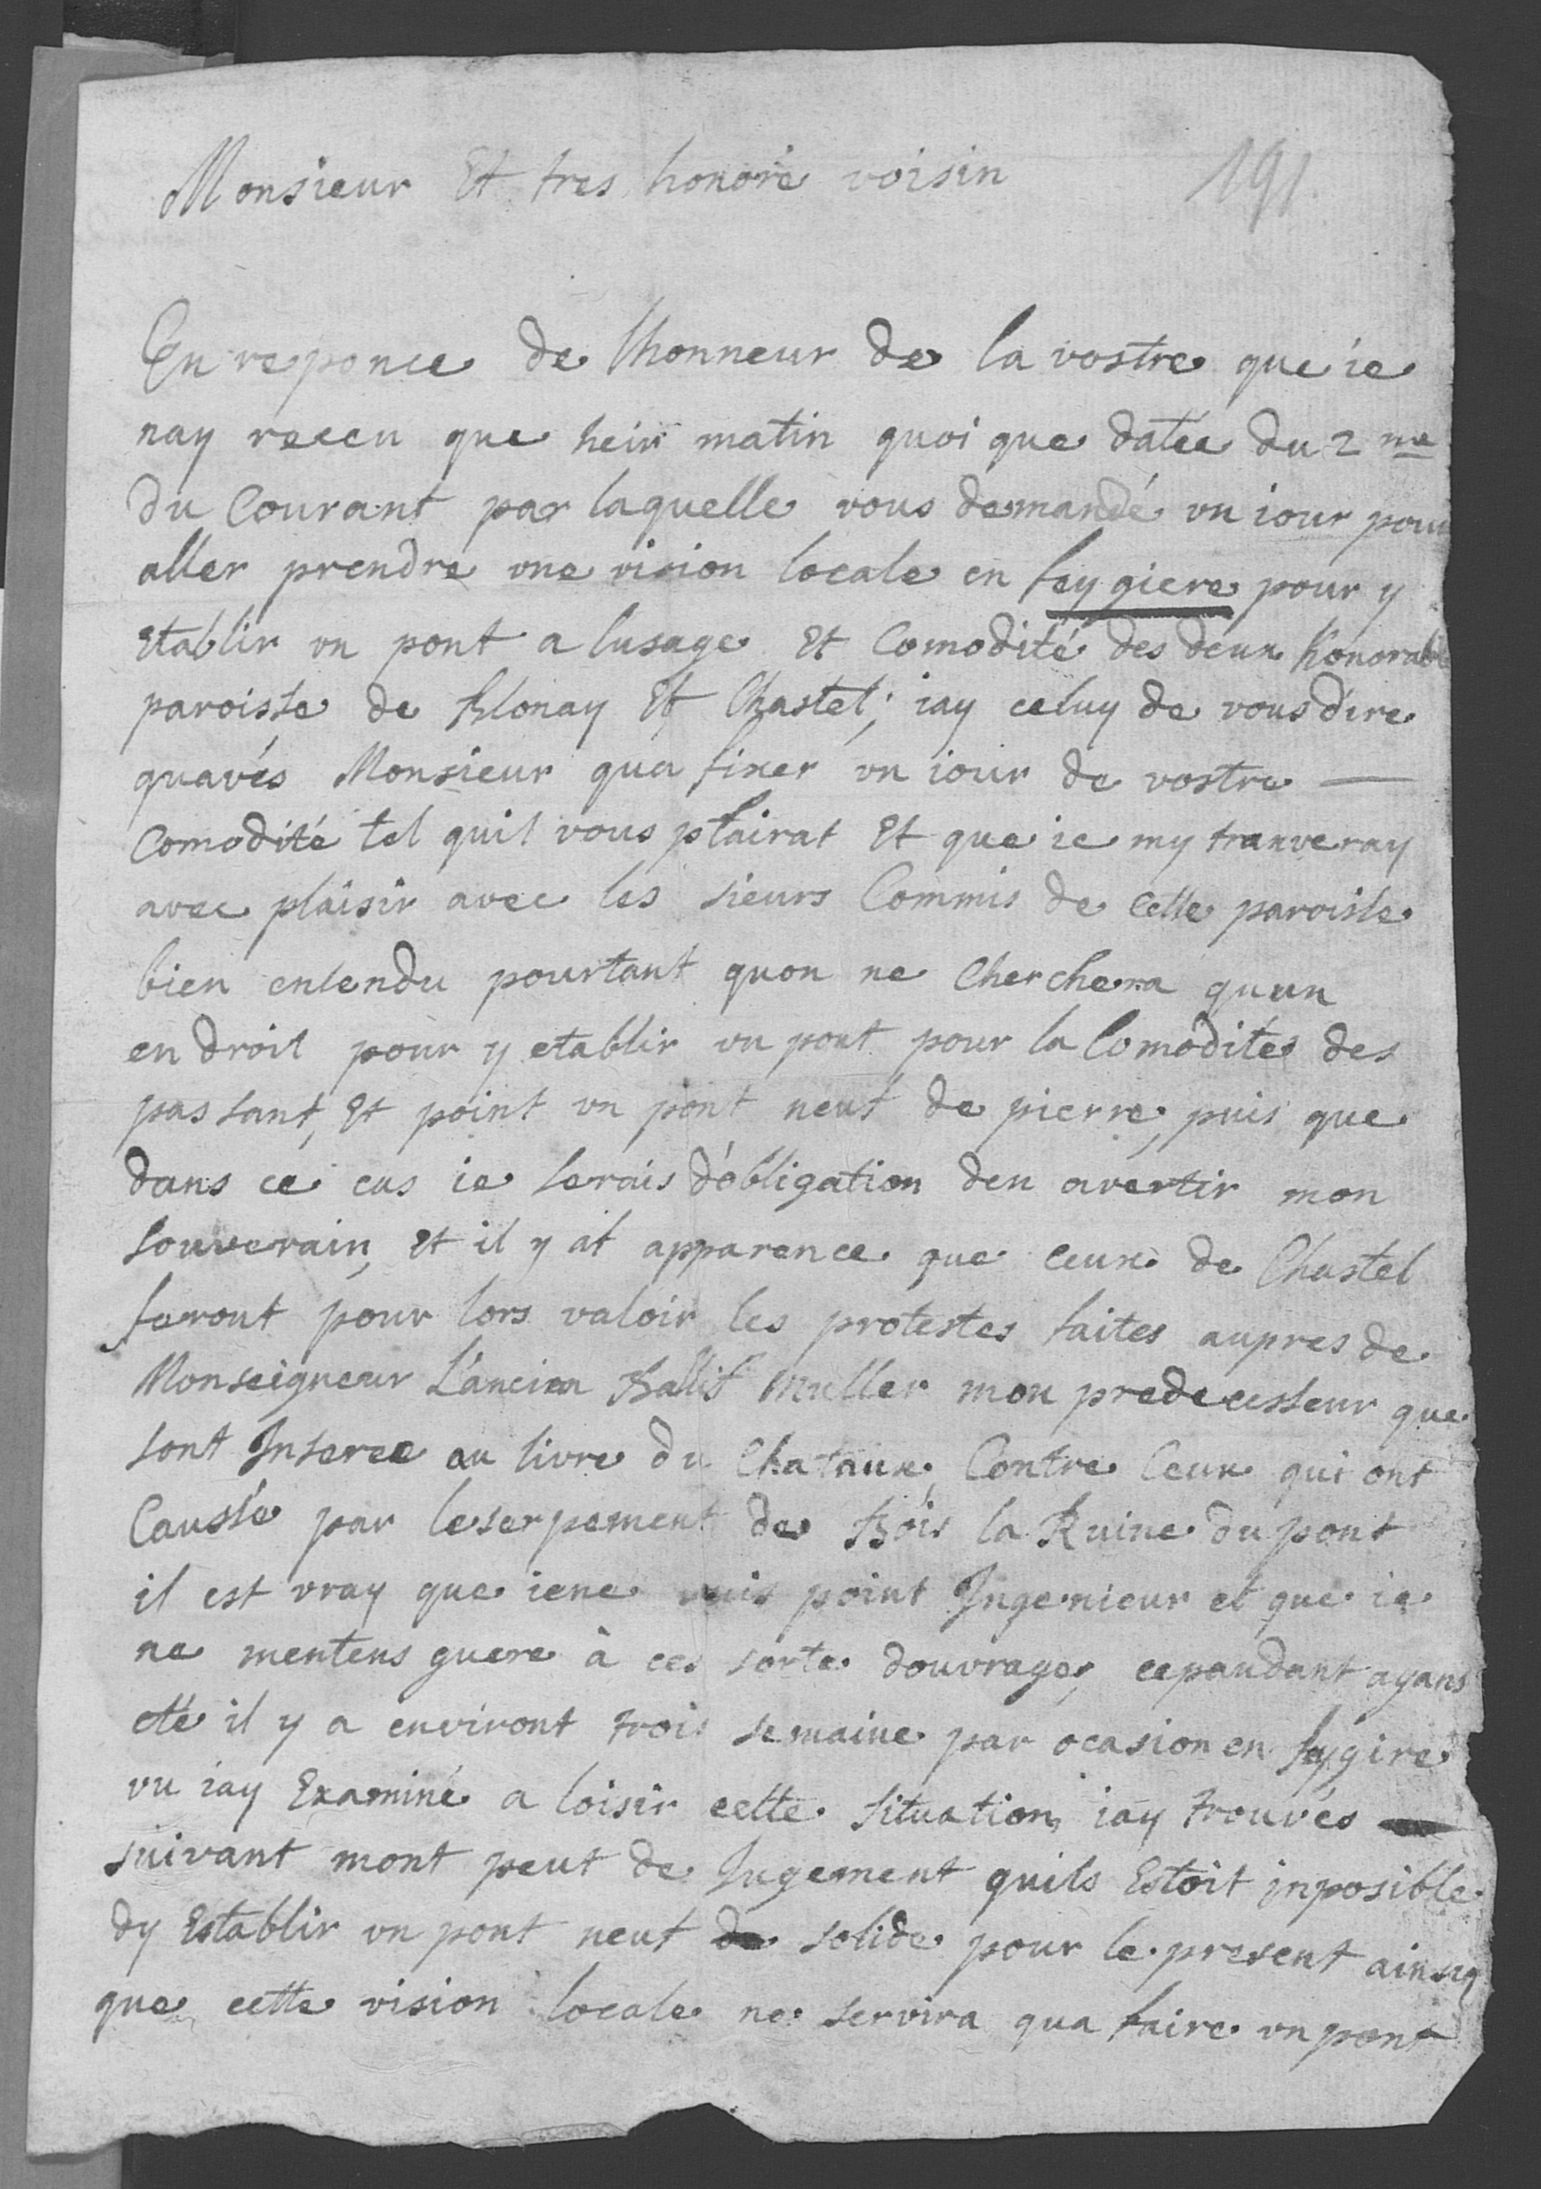 Monsieur Et tres honoré voisin
191.
En reponce de lhonneur de la vostre que ie
nay receu que heir matin quoi que datée du 2 me
du Courant par laquelle vous demandé vn iour pour
aller prendre vne vision locale en feygiere pour y
Etablir vn pont a lusage Et Comodité des deux honorable
paroisse de Blonay Et Chastel; iay celuy de vous dire
quavés Monsieur qua fixer vn iour de vostre
Comodité tel quil vous plairat Et que ie my trauveray
avec plaisir avec les sieurs Commis de Cette paroisse
bien entendu pourtant quon ne Cherchera quun
endroit pour y etablir vn pont pour la Comodités des
passant, Et point vn pont neut de pierre, puis que
dans ce cas ie serais d'obligation den avertir mon
souverain, Et il y at apparence que Ceux de Chastel
feront pour lors valoir les protestes faites aupres de
Monseigneur L'ancien Ballif Muller mon predecesseur que
sont Inseree au livre du Chataux, Contre Ceux qui ont
Caussé par leserpement de Bois la Ruine du pont
il est vray que iene suis point Ingenieur et que ie
ne mentens guere à ces sorte douvrages, cepandant ayans
eté il y a environt trois semaine par ocasion en feygire
vu iay Examiné a loisir cette situation, iay trouvés
suivant mont peut de Jugement quils Estoit inposible
dy Establir vn pont neut solide pour le present ainsy
que cette vision locale ne servira qua faire vn pont